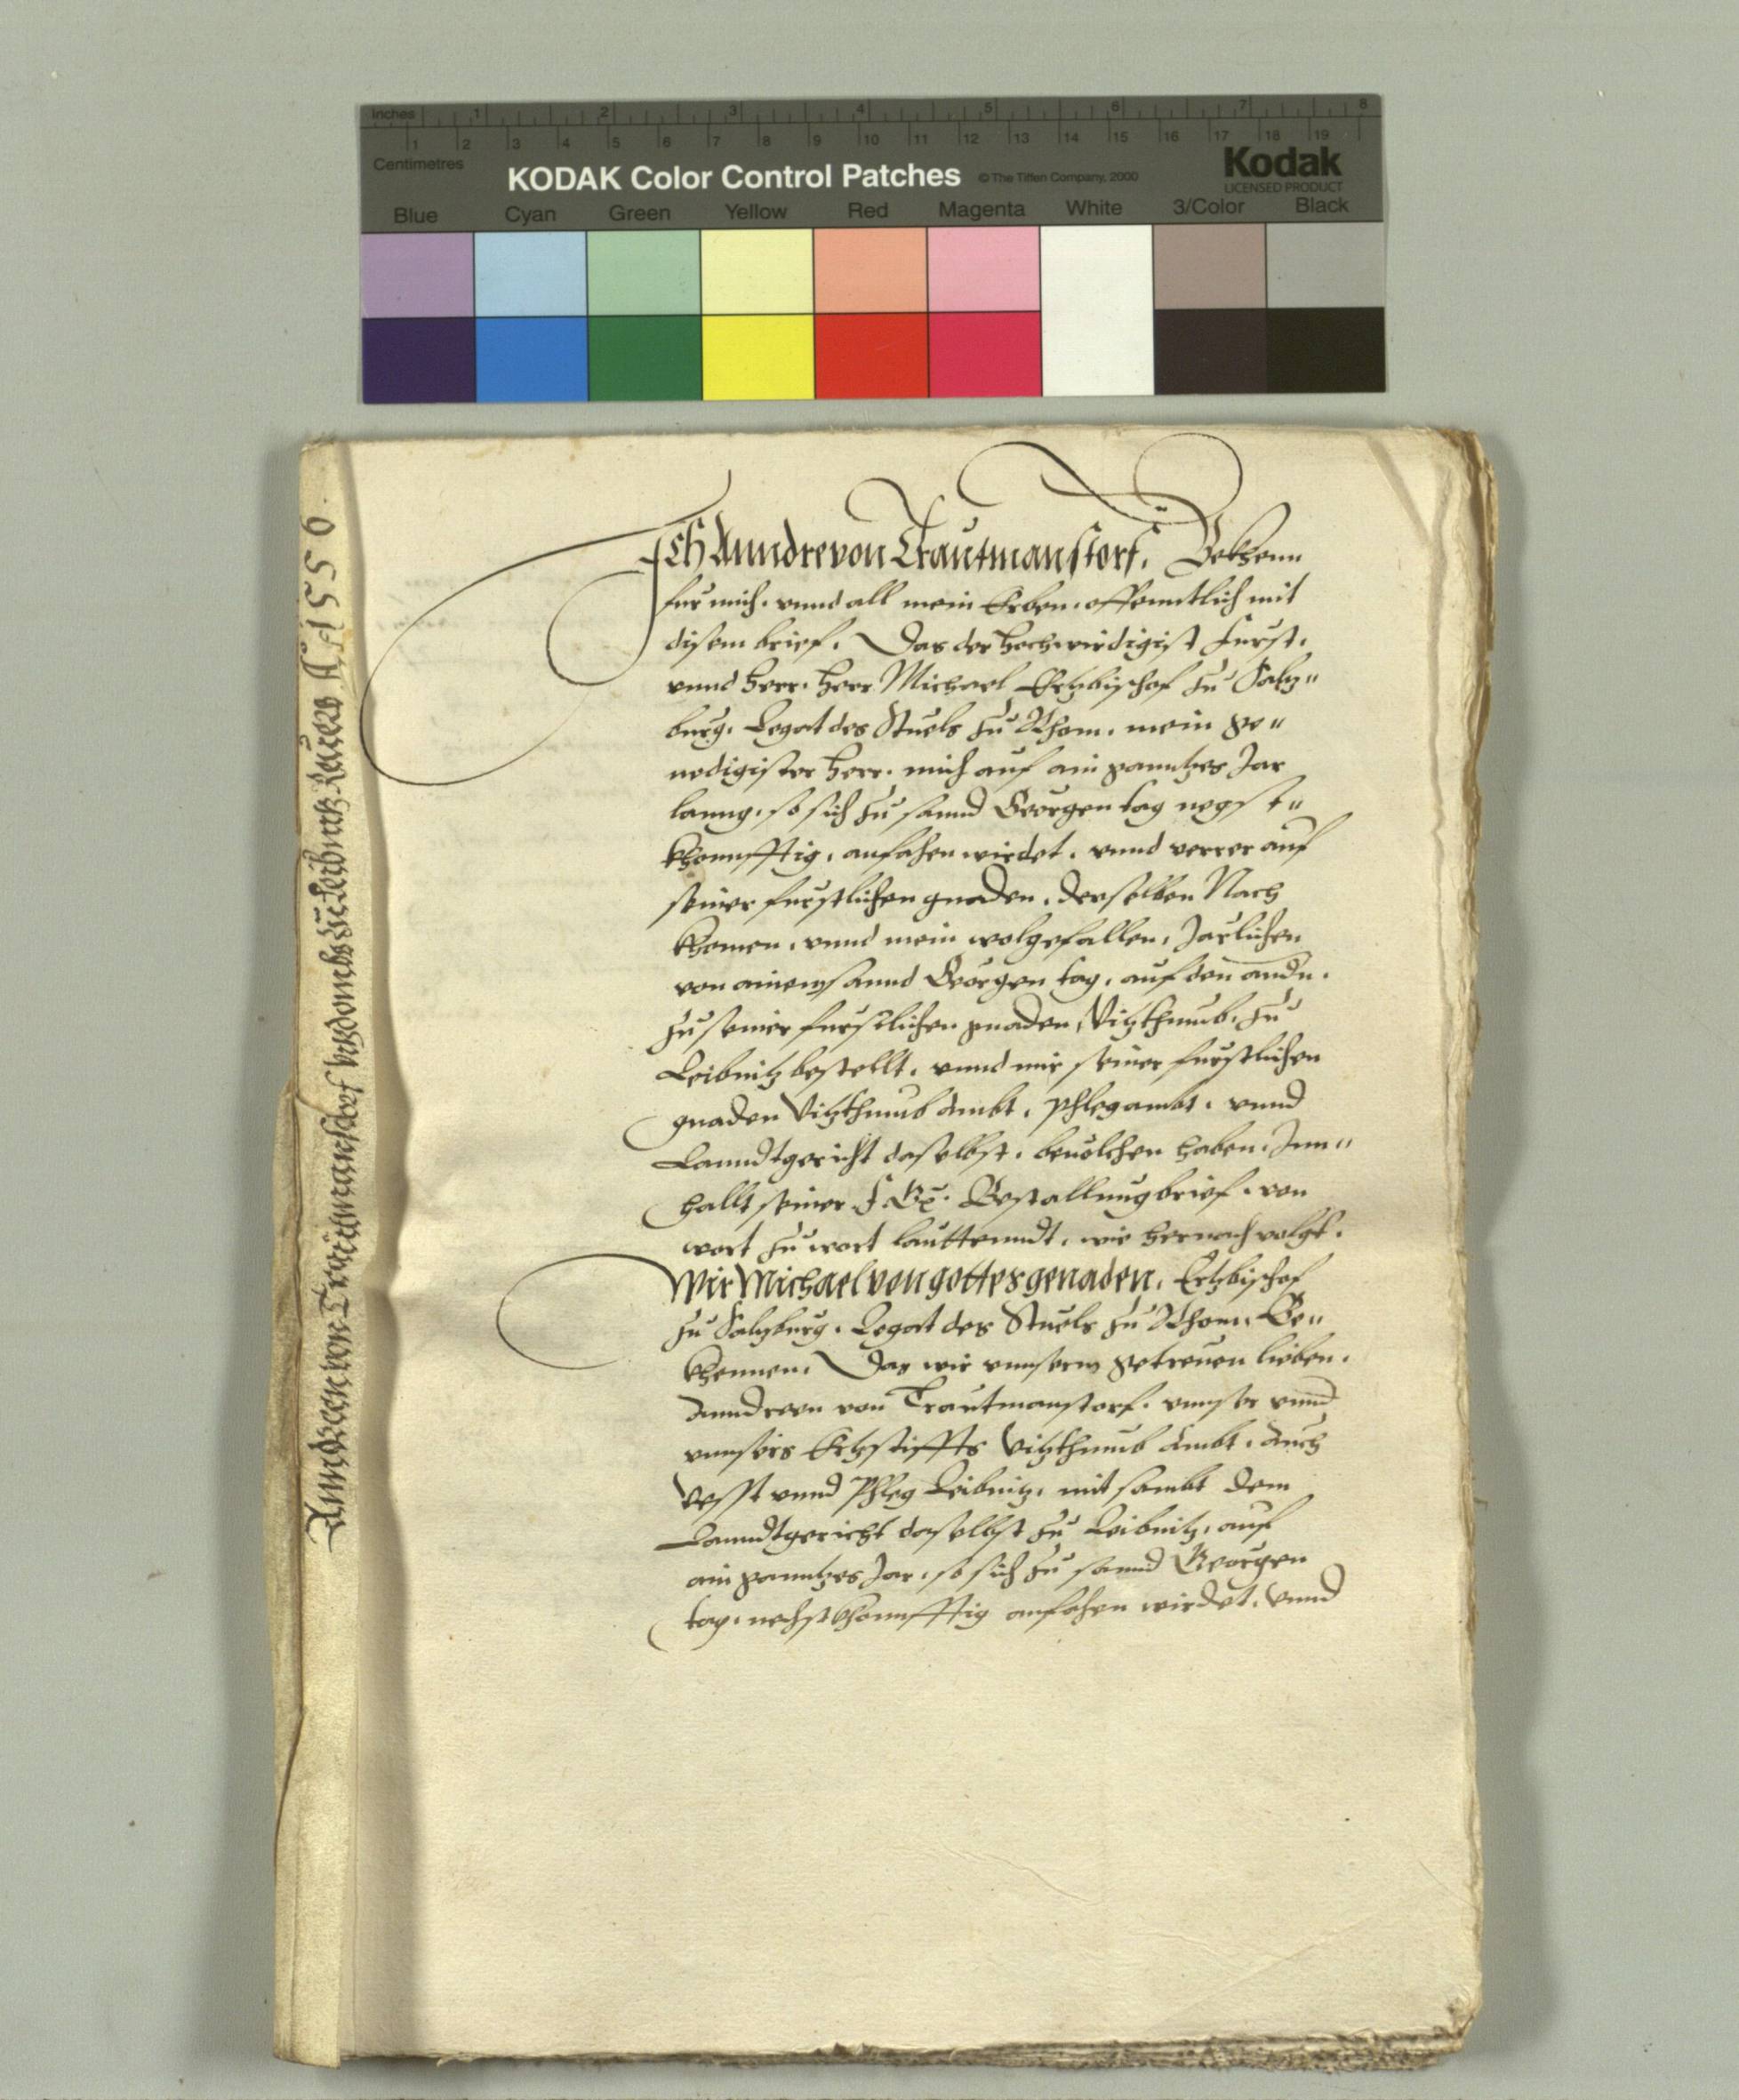 Inches 1 2 3 4 5 6 7 8
1 2 3 4 5 6 7 8 9 10 11 12 13 14 15 16 17 18 19
Centimetres
KODAK Color Control Patches © The Tiffen Company, 2000 Kodak
LICENSED PRODUCT
Blue Cyan Green Yellow Red Magenta White 3/Color Black
Ich Anndre von Trautmanstorf. Bekhenn
fur mich. vnnd all mein Erben. offenntlich mit
disem brief. Das der hochwirdigist Furst.
vnnd herr. herr Michael Ertzbischof zu Saltz"
burg. Legat des Stuels zu Rhom. mein ge"
nedigister herr. mich auf ain ganntzes Jar
lanng. so sich zu sannd Georgen tag negst"
khonnfftig. anfahen wirdet. vnnd verrer auf
seiner furstlichen gnaden. derselben Nach
khomen. vnnd mein wolgefallen. Jarlichen
von ainem sannd Georgen tag. auf den andn.
zu seiner furstlichen gnaden, Vitzthumb. zu
Leibnitz bestellt. vnnd mir seiner furstlichen
gnaden Vitzthumb Ambt. Phlegambt. vnnd
Lanndtgericht daselbst. beuolchen haben. Inn"
hallt seiner F. G. Bestallung brief. von
wort zu wort lauttenndt. wie hernach volgt.
Wir Michael von gottes genaden. Ertzbischof
zu Saltzburg. Legat des Stuels zu Rhom. Be"
khennen. Das wir vnnserm getreuen lieben.
Anndreen von Trautmanstorf. vnnser vnnd
vnnsers Ertzstiffts Vitzthumb Ambt. Auch
Vesst vnnd Phleg Leibnitz. mit sambt dem
Lanndtgericht daselbst zu Leibnitz. auf
ain ganntzes Jar. so sich zu sannd Georgen
tag. nechstkhonnfftig anfahen wirdet. Vnnd
Anndreen von Trautmanstorf Vitzdombs zu Leibnitz Reuers A. 1556.